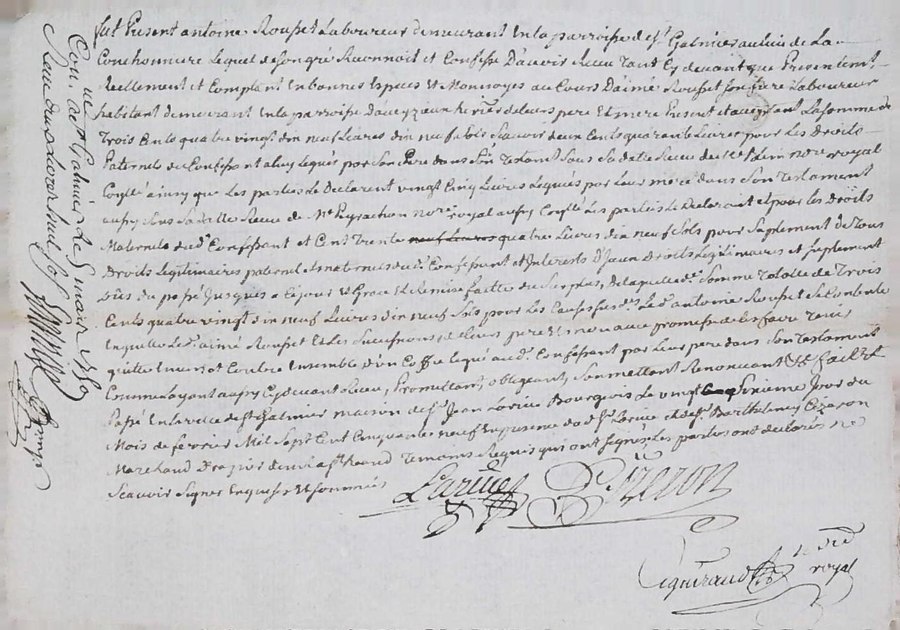 fut Présent antoine Rouset Laboureur demeurant en la parroisse de st Galmier au lieu de La
Conchonnire Lequel de son gré Reconnoit et Confesse D'avoir Receu Tant Cy devant que Presentement
Reellement et Comptant En bonnes Especes et Monnoyes au Cours D'aimé Rouset son frere Laboureur
habitant demeurant En la parroisse D'aveyzieu heritier de leurs pere Et mere Present et acceptant La Somme de
Trois Cents quatre vingt dix neuf Livres dix neuf sols Scavoir deux Cents quarante Livres pour les Droits
Paternels du Confessant a luy Legués par Son Pere dans Son Testament Sous Sa datte Receu de not royal
Coste ainsy que Les parties Le Declarent vingt Cinq Livres Legués par Leur mere dans Son Testament
aussy Sous Sa datte Receu de Me Peyrachon nore royal aussy Coste Les parties Le Declarant et pour les Droits
Maternels dud. Confessant et Cent Trente neuf Livres quatre Livres dix neuf Sols pour Suplement de Tous
Droits Legitimaires paternels et maternels dud. Confessant et Interests D'yceux Droits Legitimaires et Suplement
Dûs du passé Jusques a Ce jour Et Grace Et Remise faitte du Surplus, De laquelle de. Somme Totalle de Trois
Cents quatre vingt dix neuf Livres dix neuf Sols pour les Causes sus des. Le d. antoine Rouset Se Contente
En quitte Le d. aimé Rouset Et Les Successions de leurs pere Et mere avec promesse de les faire Tenir
quitte Envers et Contre Ensemble d'un Coffre Legué aud. Confessant par Leur pere dans Son Testament
Comme L'ayant aussy Cy devant Receu, Promettant, obligeant, Soumettant Renonceant &c fait et
Passé En la ville de st Galmier maison de sr Jean Larive Bourgeois Le vingt Sixieme Jour du
Mois de fevrier Mil Sept Cent Cinquante neuf En presence dud. sr Larive et de sr Barthelemy Cizeron
Marchand Drapier dud. st Temoins Requis qui ont Signé et Les parties ont declarés ne
Scavoir Signer Enquises Et Sommées
Larive Cizeron
royal
Con. a st Galmier Le 1759
Receu